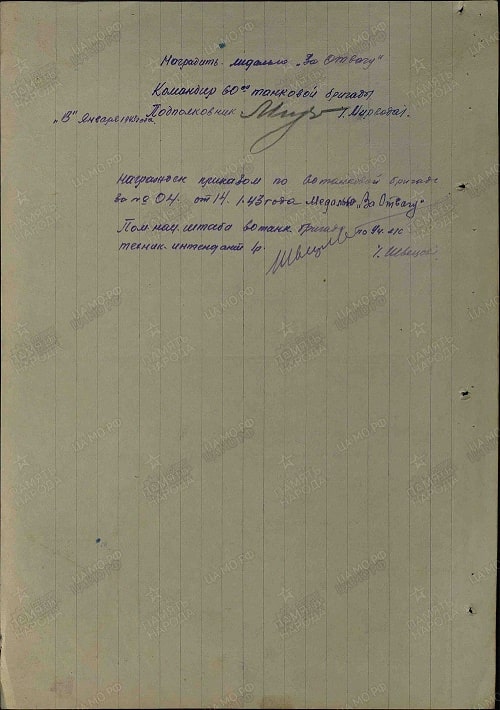 Наградить медалью „За Отвагу"
Командир 60ой танковой бригады
„8" Января 1943 года. Подполковник
Награжден приказом по 60 танковой бригаде
за № 04. от 14. 1.43 года Медалью „За Отвагу"
Пом. нач. штаба 60 танк. бригады по уч. л/с
техник-интендант 1 р.
/. Швецов/.
ПАМЯТЬ НАРОДА
ЦАМО.РФ